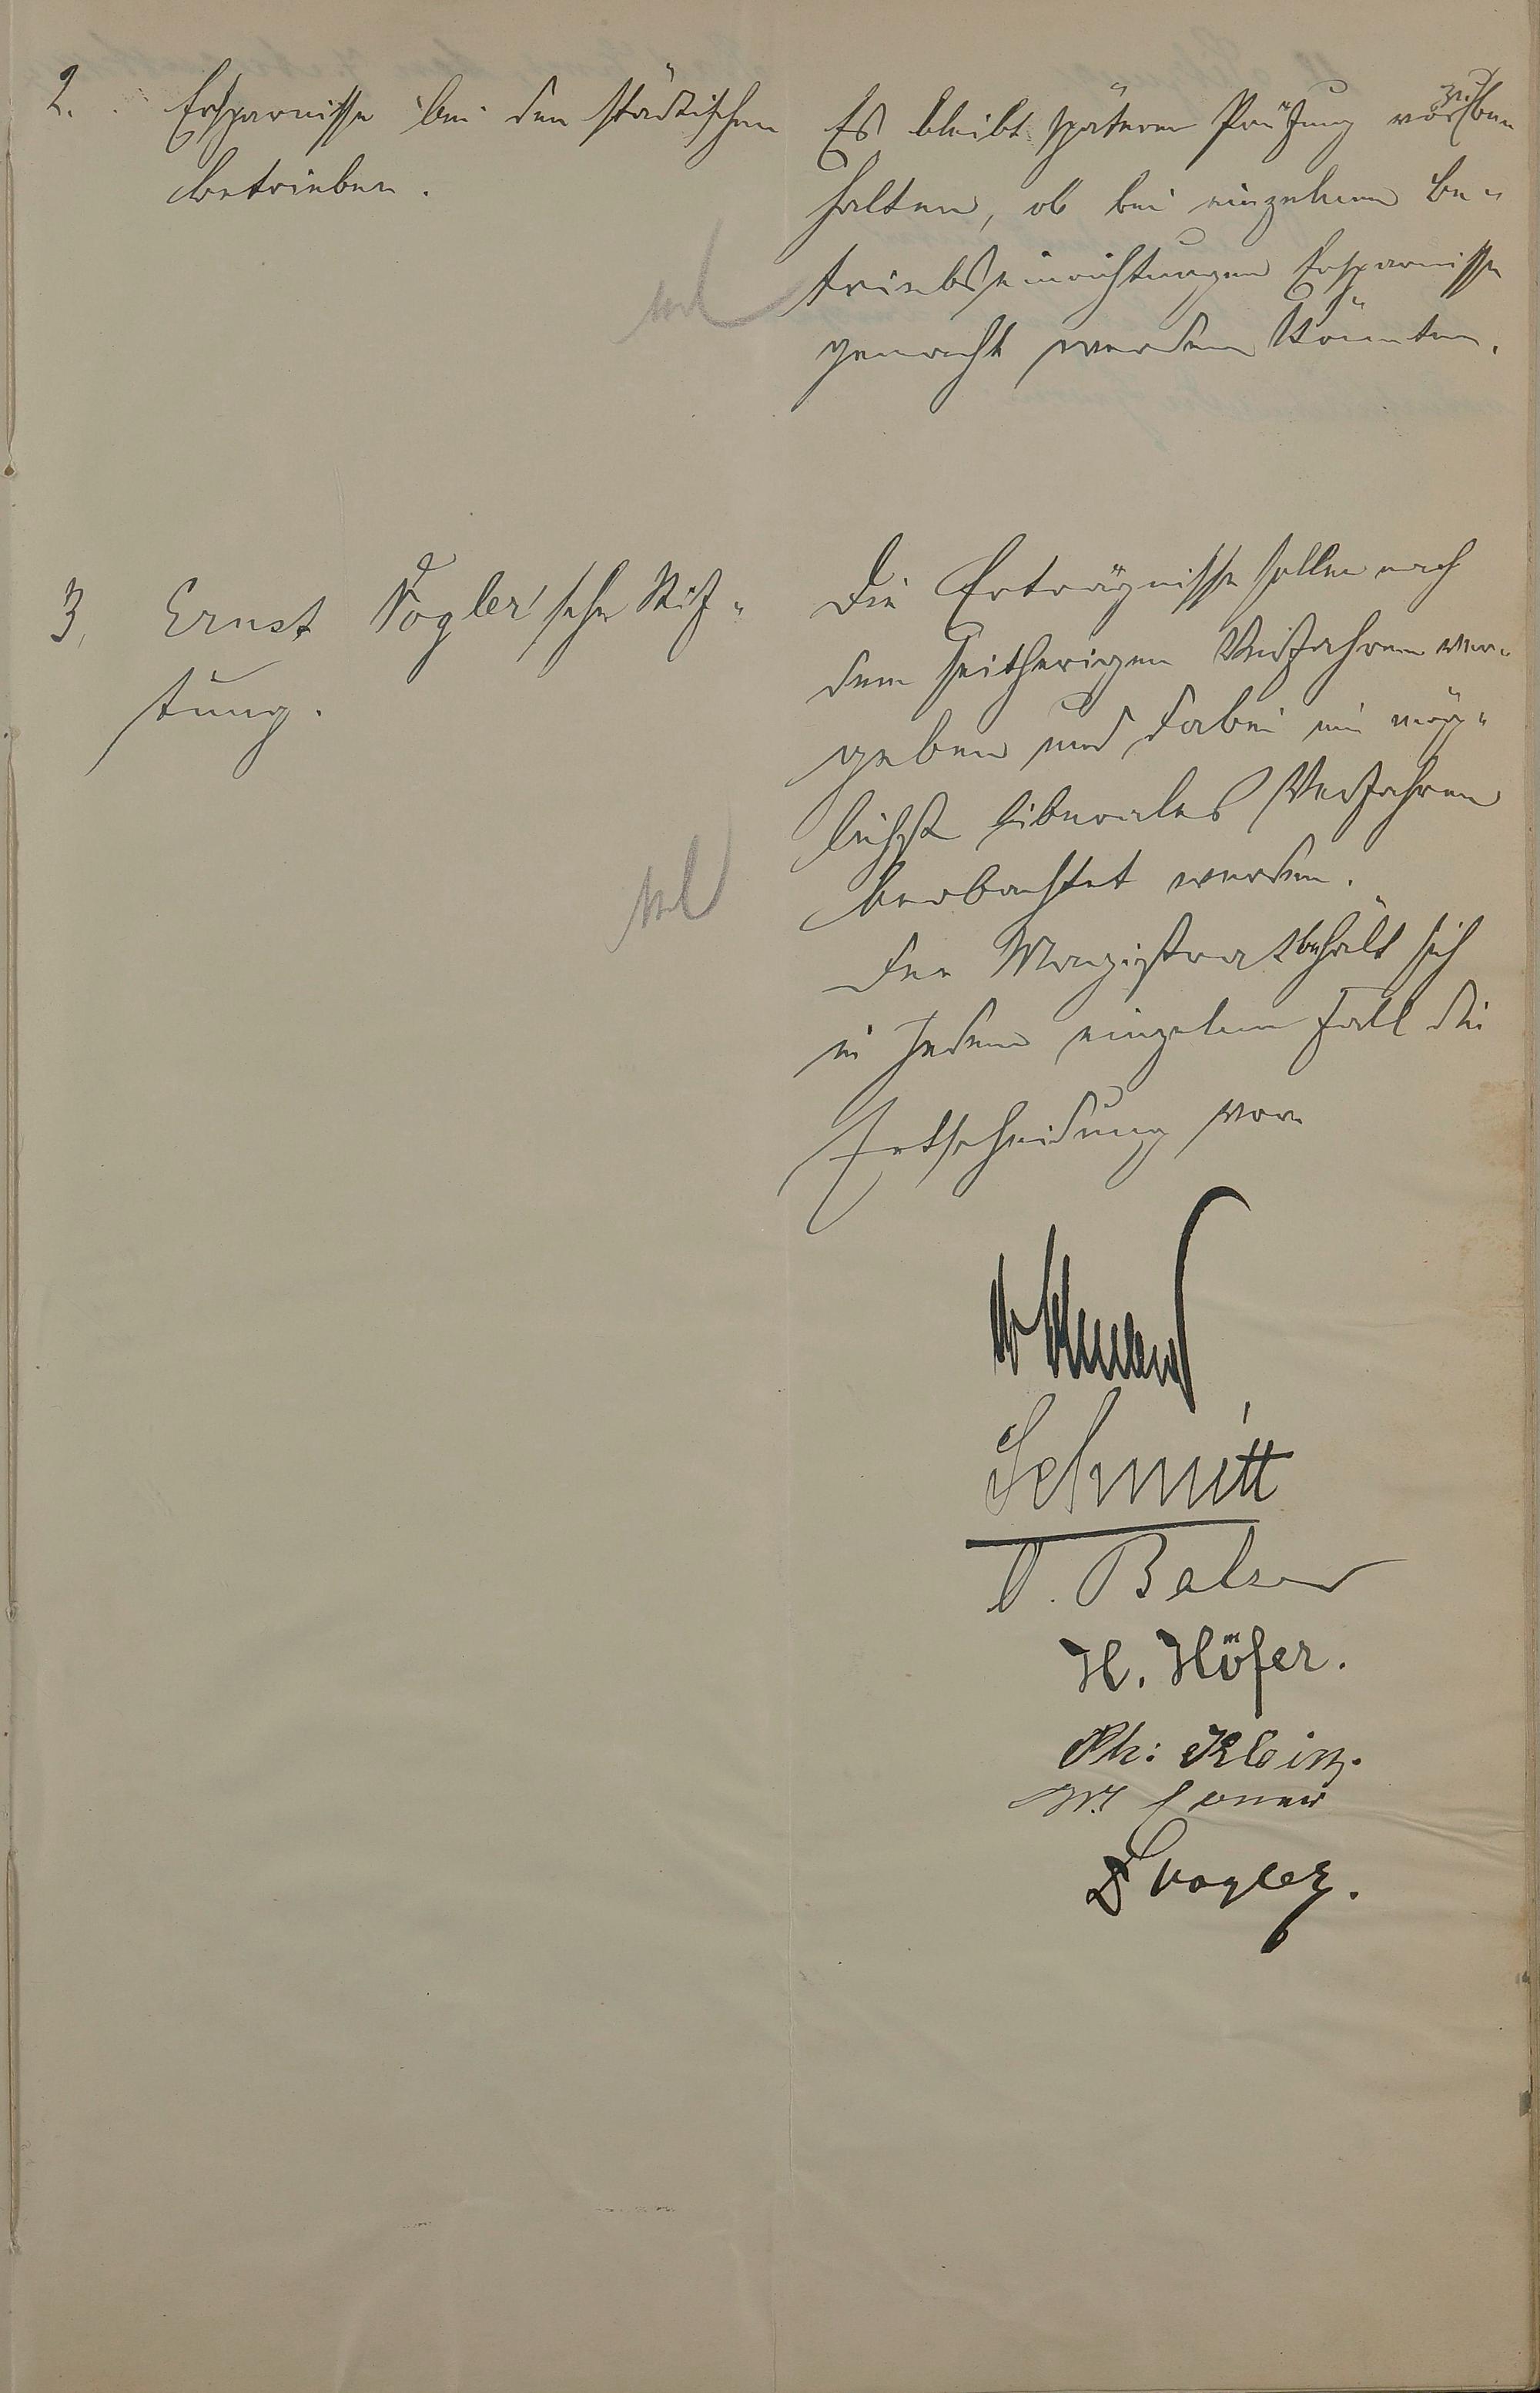 2. Ersparnisse bei den städtischen
betrieben.
Es bleibt späterer Prüfung vorzube
halten, ob bei einzelnen Be-
triebseinrichtungen Ersparnisse
gemacht werden könnten.
3, Ernst Vogler'sche Stif-
tung.
Die Erträgnisse sollen nach
dem seitherigen Verfahren ver-
geben und dabei ein mög-
lichst liberales Verfahren
beobachtet werden.
Der Magistrat behält sich
in jedem einzelnen Fall die
Entscheidung vor
Schmitt
Balser
H. Höfer.
Ph: Klein.
Vogler.